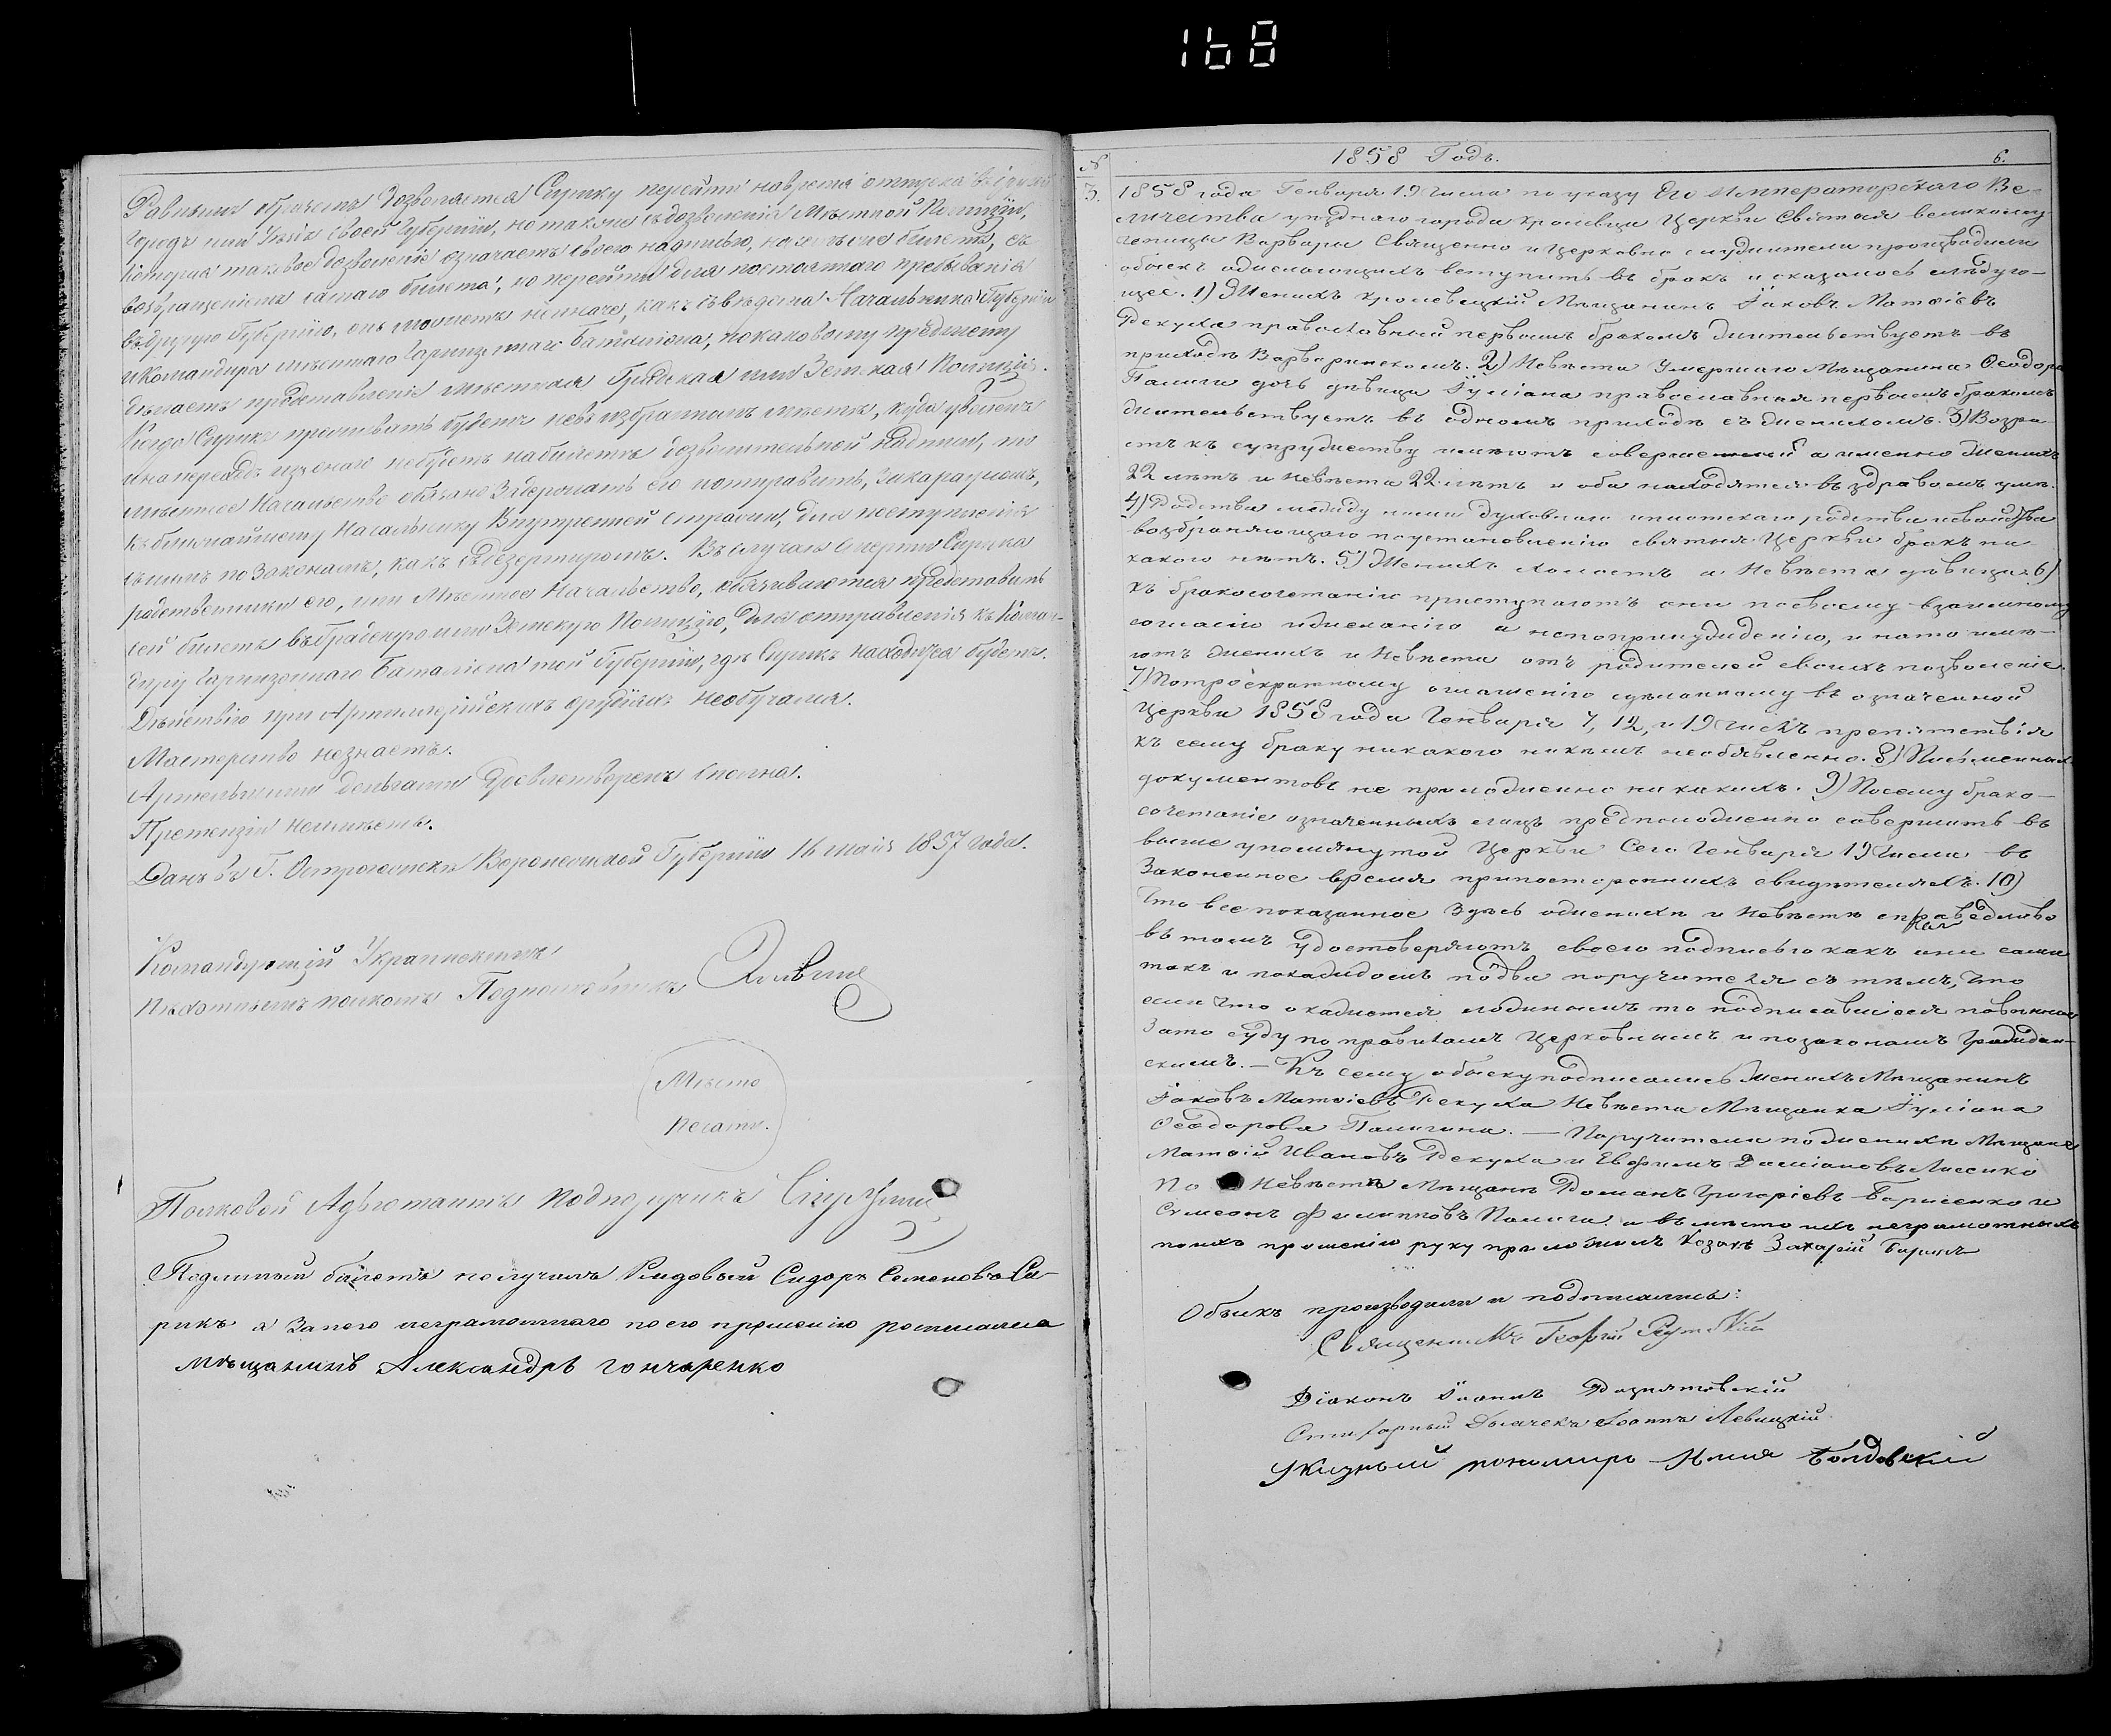 168
Равнымъ образомъ дозволяется Сирику перейти навремя отпуска въ другой
Городъ или Уѣздъ своей Губерніи, но также съ дозволенія мѣстной Полиціи,
которая таковое дозволеніе означаетъ своею надписью, на семъ же билетѣ, съ
возвращеніемъ самаго билета; но перейти для постояннаго пребыванія
въ другую Губернію, онъ можетъ не иначе, какъ съ вѣдома Начальника Губерніи
и Командира мѣстнаго Гарнизоннаго Баталіона, по каковому предмету
дѣлаетъ представленіе мѣстная Градская или Земская Полиція.
Когда Сирикъ проживать будетъ не въ избранномъ мѣстѣ, куда уволенъ
и на переѣздъ изъ онаго не будетъ на билетѣ дозволительной надписи, то
мѣстное Начальство обязано задержать его и отправить, за карауломъ,
къ ближайшему Начальнику Внутренней стражи, для поступленія
съ нимъ по законамъ, какъ съ дезертиромъ. Въ случаѣ смерти Сирика
родственники его, или Мѣстное Начальство, обязываются представить
сей билетъ въ Градскую или Земскую Полицію, для отправленія къ Коман-
диру Гарнизоннаго Баталіона той Губерніи, гдѣ Сирикъ находился будетъ.
Дѣйствію при Артиллерійскихъ орудіяхъ необучался.
Мастерство незнаетъ.
Артельными деньгами удовлетворенъ сполна.
Претензіи неимѣетъ.
Данъ въ Г. Острогожскѣ Воронежской Губерніи 16 маія 1857 года.
Командующій Украинскимъ
пѣхотнымъ полкомъ Подполковникъ
Мѣсто
печати.
Полковой Адъютантъ Подпоручикъ
Подлинный билетъ получилъ Рядовый Сидоръ Семеновъ Си-
рикъ а за него неграмотнаго по его прошенію росписался
мѣщанинъ Александръ гончаренко
№ 1858 Годъ. 6.
3. 1858 года Генваря 19 числа по указу Его Императорскаго Ве-
личества уѣзднаго города кролевца Церкви Святыя великому-
ченицы Варвары Священно и Церковно служители производили
обыскъ о желающихъ вступить въ бракъ и оказалось слѣдую-
щее. 1) Женихъ кролевецкій Мѣщанинъ Іаковъ Матѳіевъ
Рекуха православный первымъ бракомъ жительствуетъ въ
приходѣ Варваринскомъ. 2) Невѣста Умершаго Мѣщанина Ѳеодора
Палиги дочь дѣвица Іуліана православная первымъ бракомъ
жительствуетъ въ одномъ приходѣ съ женихомъ. 3) Возра-
стъ къ супружеству имѣютъ совершенный а именно женихъ
22 лѣтъ и невѣста 22 лѣтъ и оба находятся въ здравомъ умѣ.
4) Родства между ними духовнаго и плотскаго родства и свойства
возбраняющаго по установленію святыя Церкви бракъ ни-
какого нѣтъ. 5) Женихъ холостъ а Невѣста дѣвица. 6)
къ бракосочетанію приступаютъ они по своему взаимному
согласію и желанію а не по принужденію, и на то имѣ-
ютъ женихъ и Невѣста отъ родителей своихъ позволеніе.
7) По троекратному оглашенію сдѣланному въ означенной
Церкви 1858 года Генваря 7, 12, и 19 числъ препятствія
къ сему браку никакого никѣмъ необъявленно. 8) Письменныхъ
документовъ не приложенно никакихъ. 9) Посему брако-
сочетаніе означенныхъ лицъ предположенно совершить въ
выше упомянутой Церкви Сего Генваря 19 числа въ
Законенное время при постороннихъ свидѣтеляхъ. 10)
Что все показанное здѣсь о женихѣ и Невѣстѣ справедливо
въ томъ удостовѣряютъ своею подписью какъ они сами
такъ и по каждомъ по два поручителя съ тѣмъ, что
если что окажется ложнымъ то подписавшіеся повинны
за то суду по правиламъ Церковнымъ и по законамъ Граждан-
скимъ. — Къ сему обыску подписались женихъ Мѣщанинъ
Іаковъ Матѳіевъ Рекуха Невѣста Мѣщанка Іуліана
Ѳеодорова Палигина. — Поручители по женихѣ Мѣщане
Матѳій Ивановъ Рекуха и Евфимъ Даміановъ
По Невѣстѣ Мѣщане Романъ Григоріевъ Борисенко и
Симеонъ Филипповъ Палига а вмѣсто ихъ неграмотныхъ
по ихъ прошенію руку приложилъ Козакъ Захарій
Обыскъ производили и подписались:
Священникъ Георгій
Діаконъ Іоаннъ
Стихарный Дьячекъ Іоаннъ Левицкій
Указный понамарь Илия